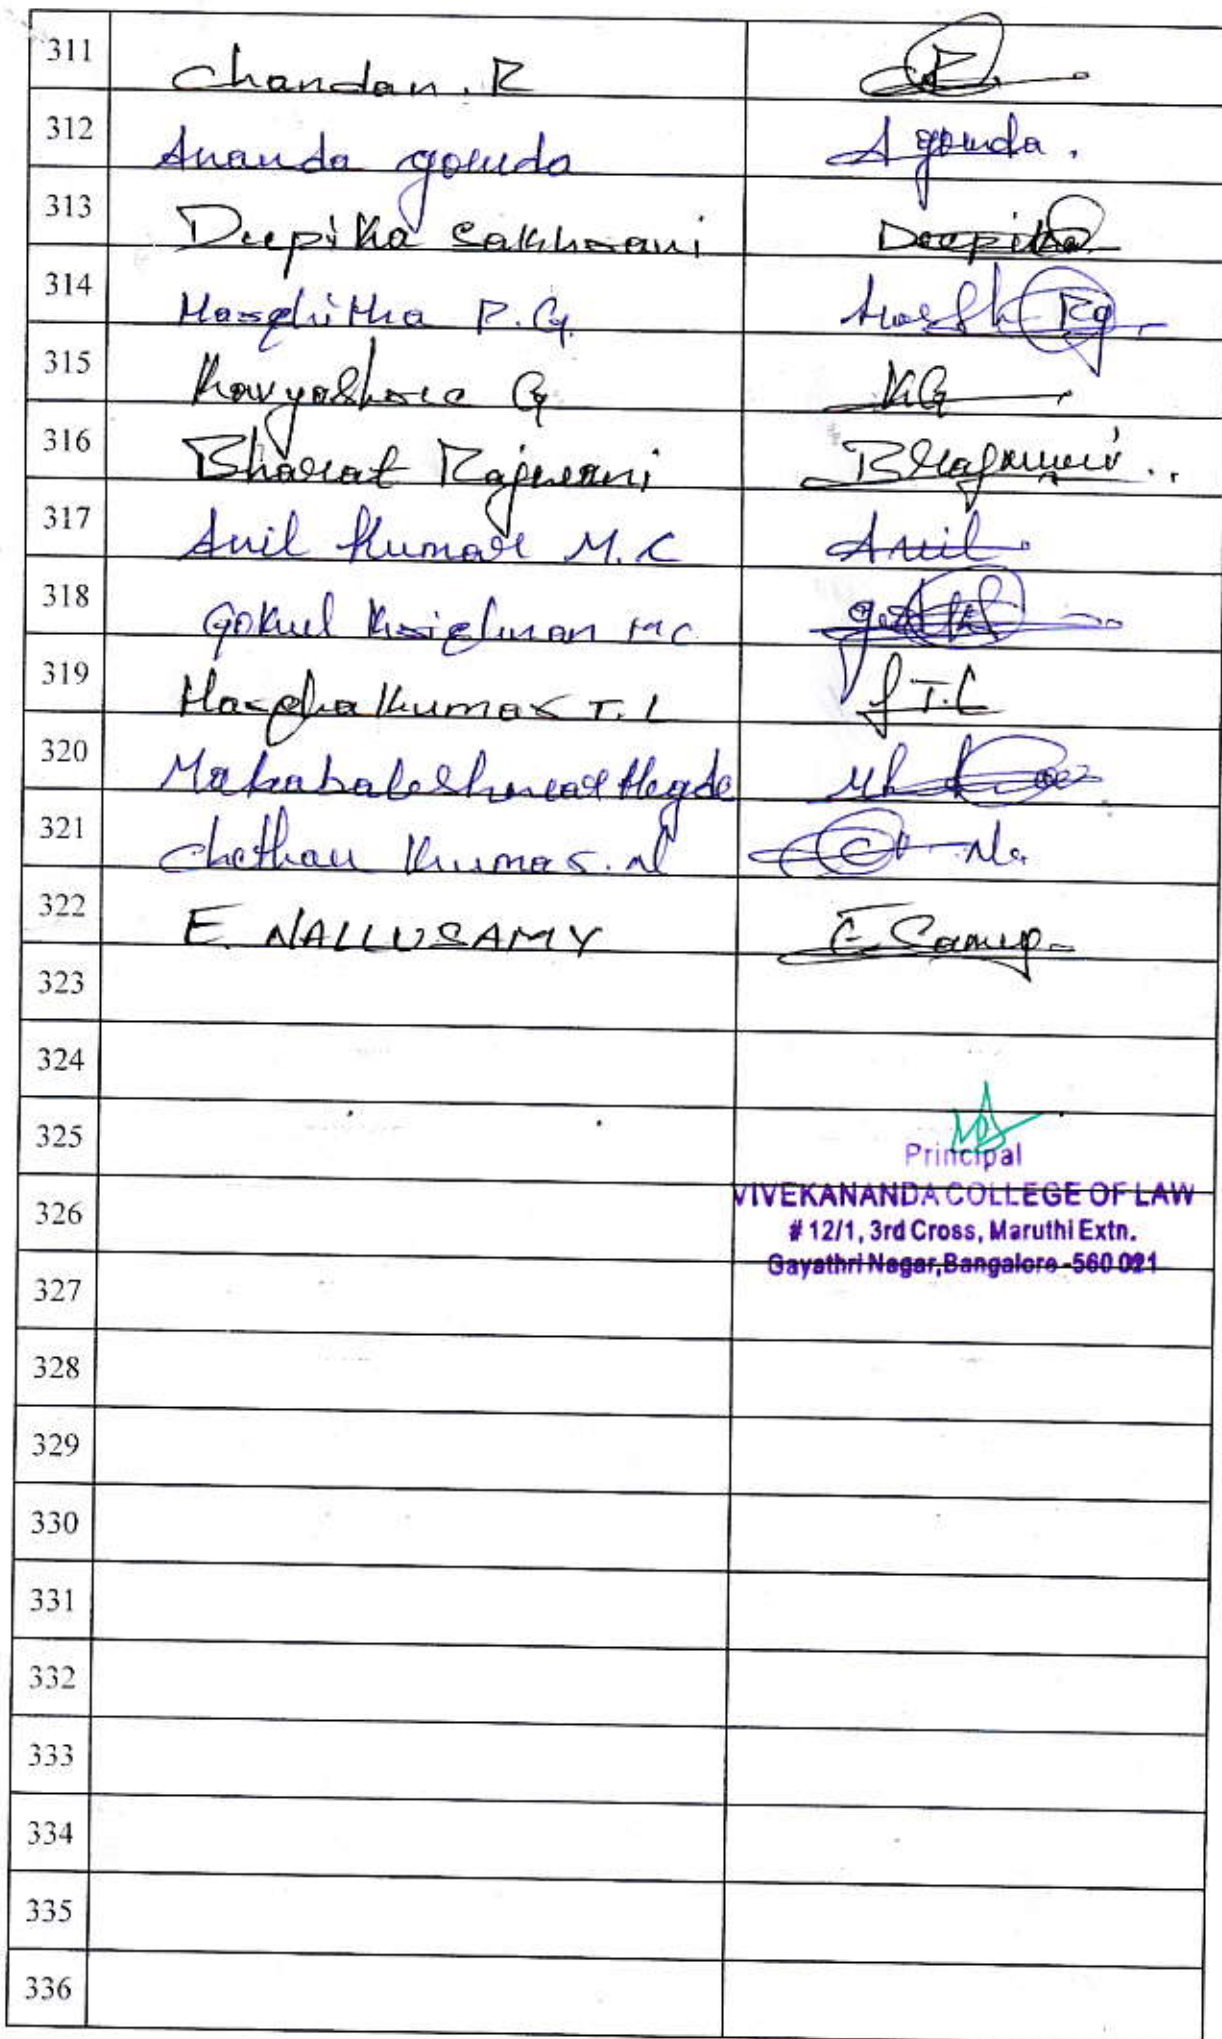 311 Chandan. R
312 Ananda gowda A gowda.
313 Deepika Sakhrani Deepika
314 Harshitha R.G. Harsh Rg
315 Kavyashree G KG
316 Bharat Rajwani
317 Anil Kumar M.C Anil
318 Gokul Krishnan MC
319 Harsha Kumar T.L T.L
320 Mahabaleshwar Hegde
321 Chethan Kumar. N
322 E. NALLUSAMY E Samy
323
324
325
Principal
326 VIVEKANANDA COLLEGE OF LAW
# 12/1, 3rd Cross, Maruthi Extn.
Gayathri Nagar, Bangalore -560 021
327
328
329
330
331
332
333
334
335
336